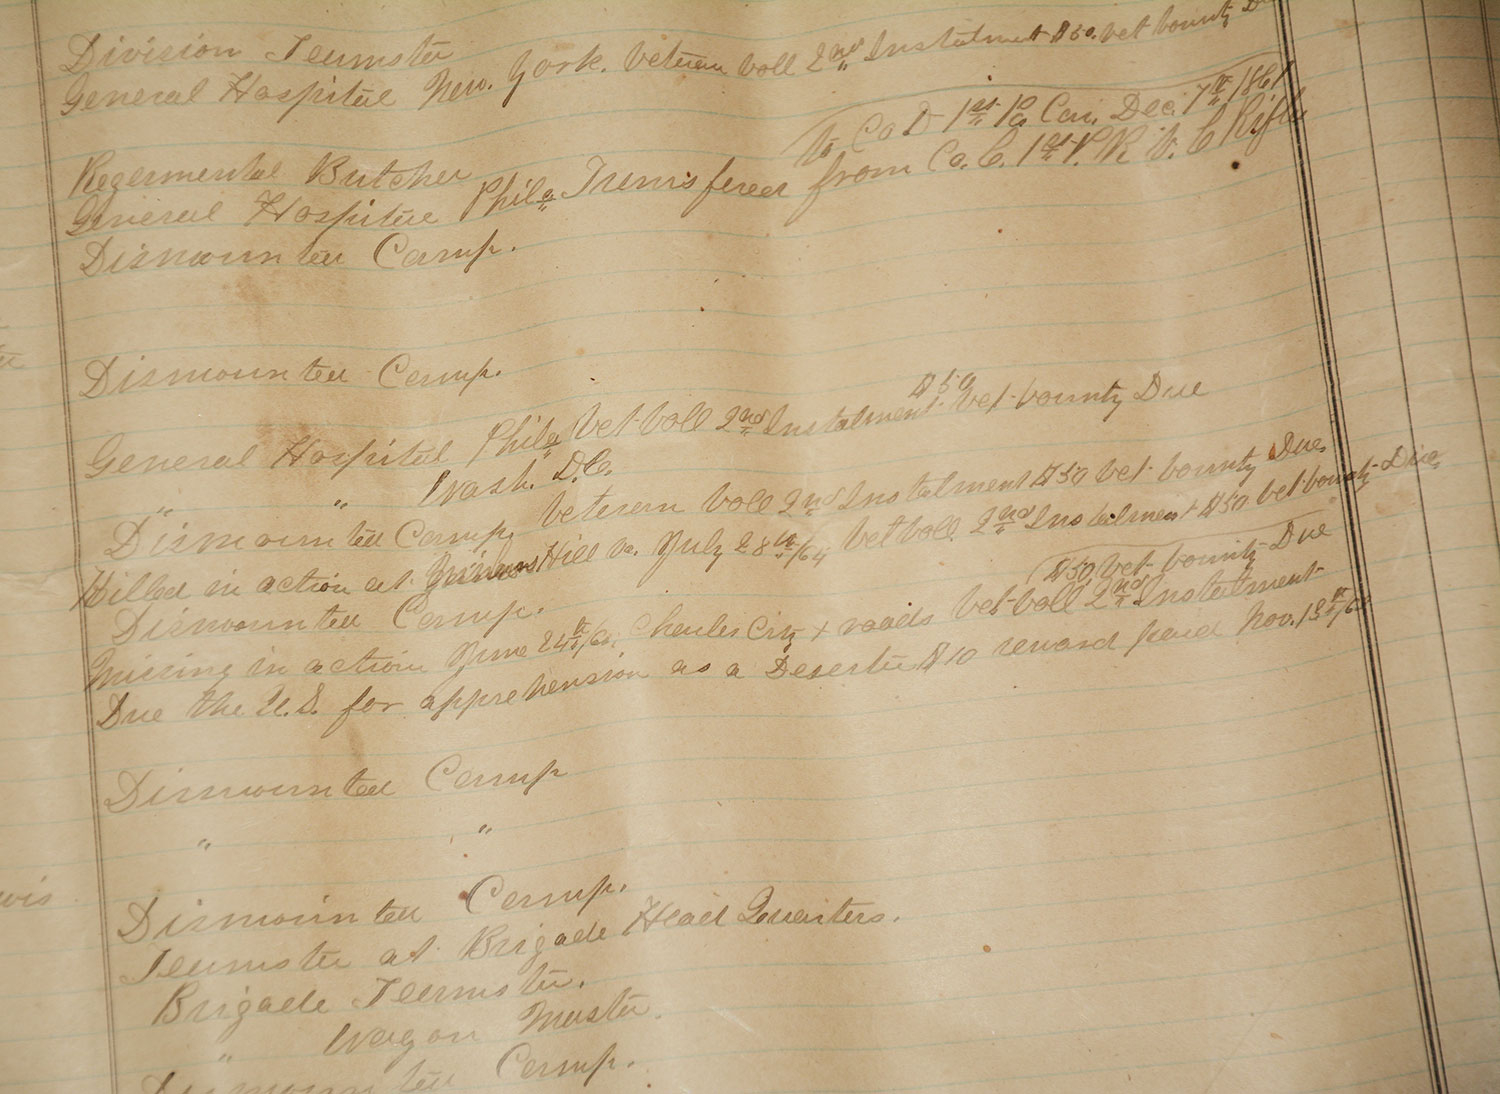 Division Teamster
General Hospital New. York. Veteran Voll 2nd Instalment $50. vet bounty Due
to Co D 1st Pa Cav. Dec. 7th 1861
Regermental Butcher
General Hospital Phila Transfered from Co. C. 1st P. R. V. C Rifle
Dismounted Camp.
Dismounted Camp.
$50
General Hospital Phila Vet Voll 2nd Instalment vet bounty Due
" " Wash. D.C.
Dismounted Camp. Veteran Voll 2nd Instalment $50 vet bounty Due
Killed in action at Hill Va. July 28th/64 Vet Voll 2nd Instalment $50 vet bounty Due
$50 vet bounty Due
Dismounted Camp.
Missing in action June 24th/64. Charles City X roads Vet Voll 2nd Instalment
Due the U.S. for apprehension as a Deserter $10 reward paid Nov. 13th/63
Dismounted Camp
" "
Dismounted Camp.
Teamster at Brigade Head Quarters.
Brigade Teamster.
" Wagon Master.
Dismounted Camp.